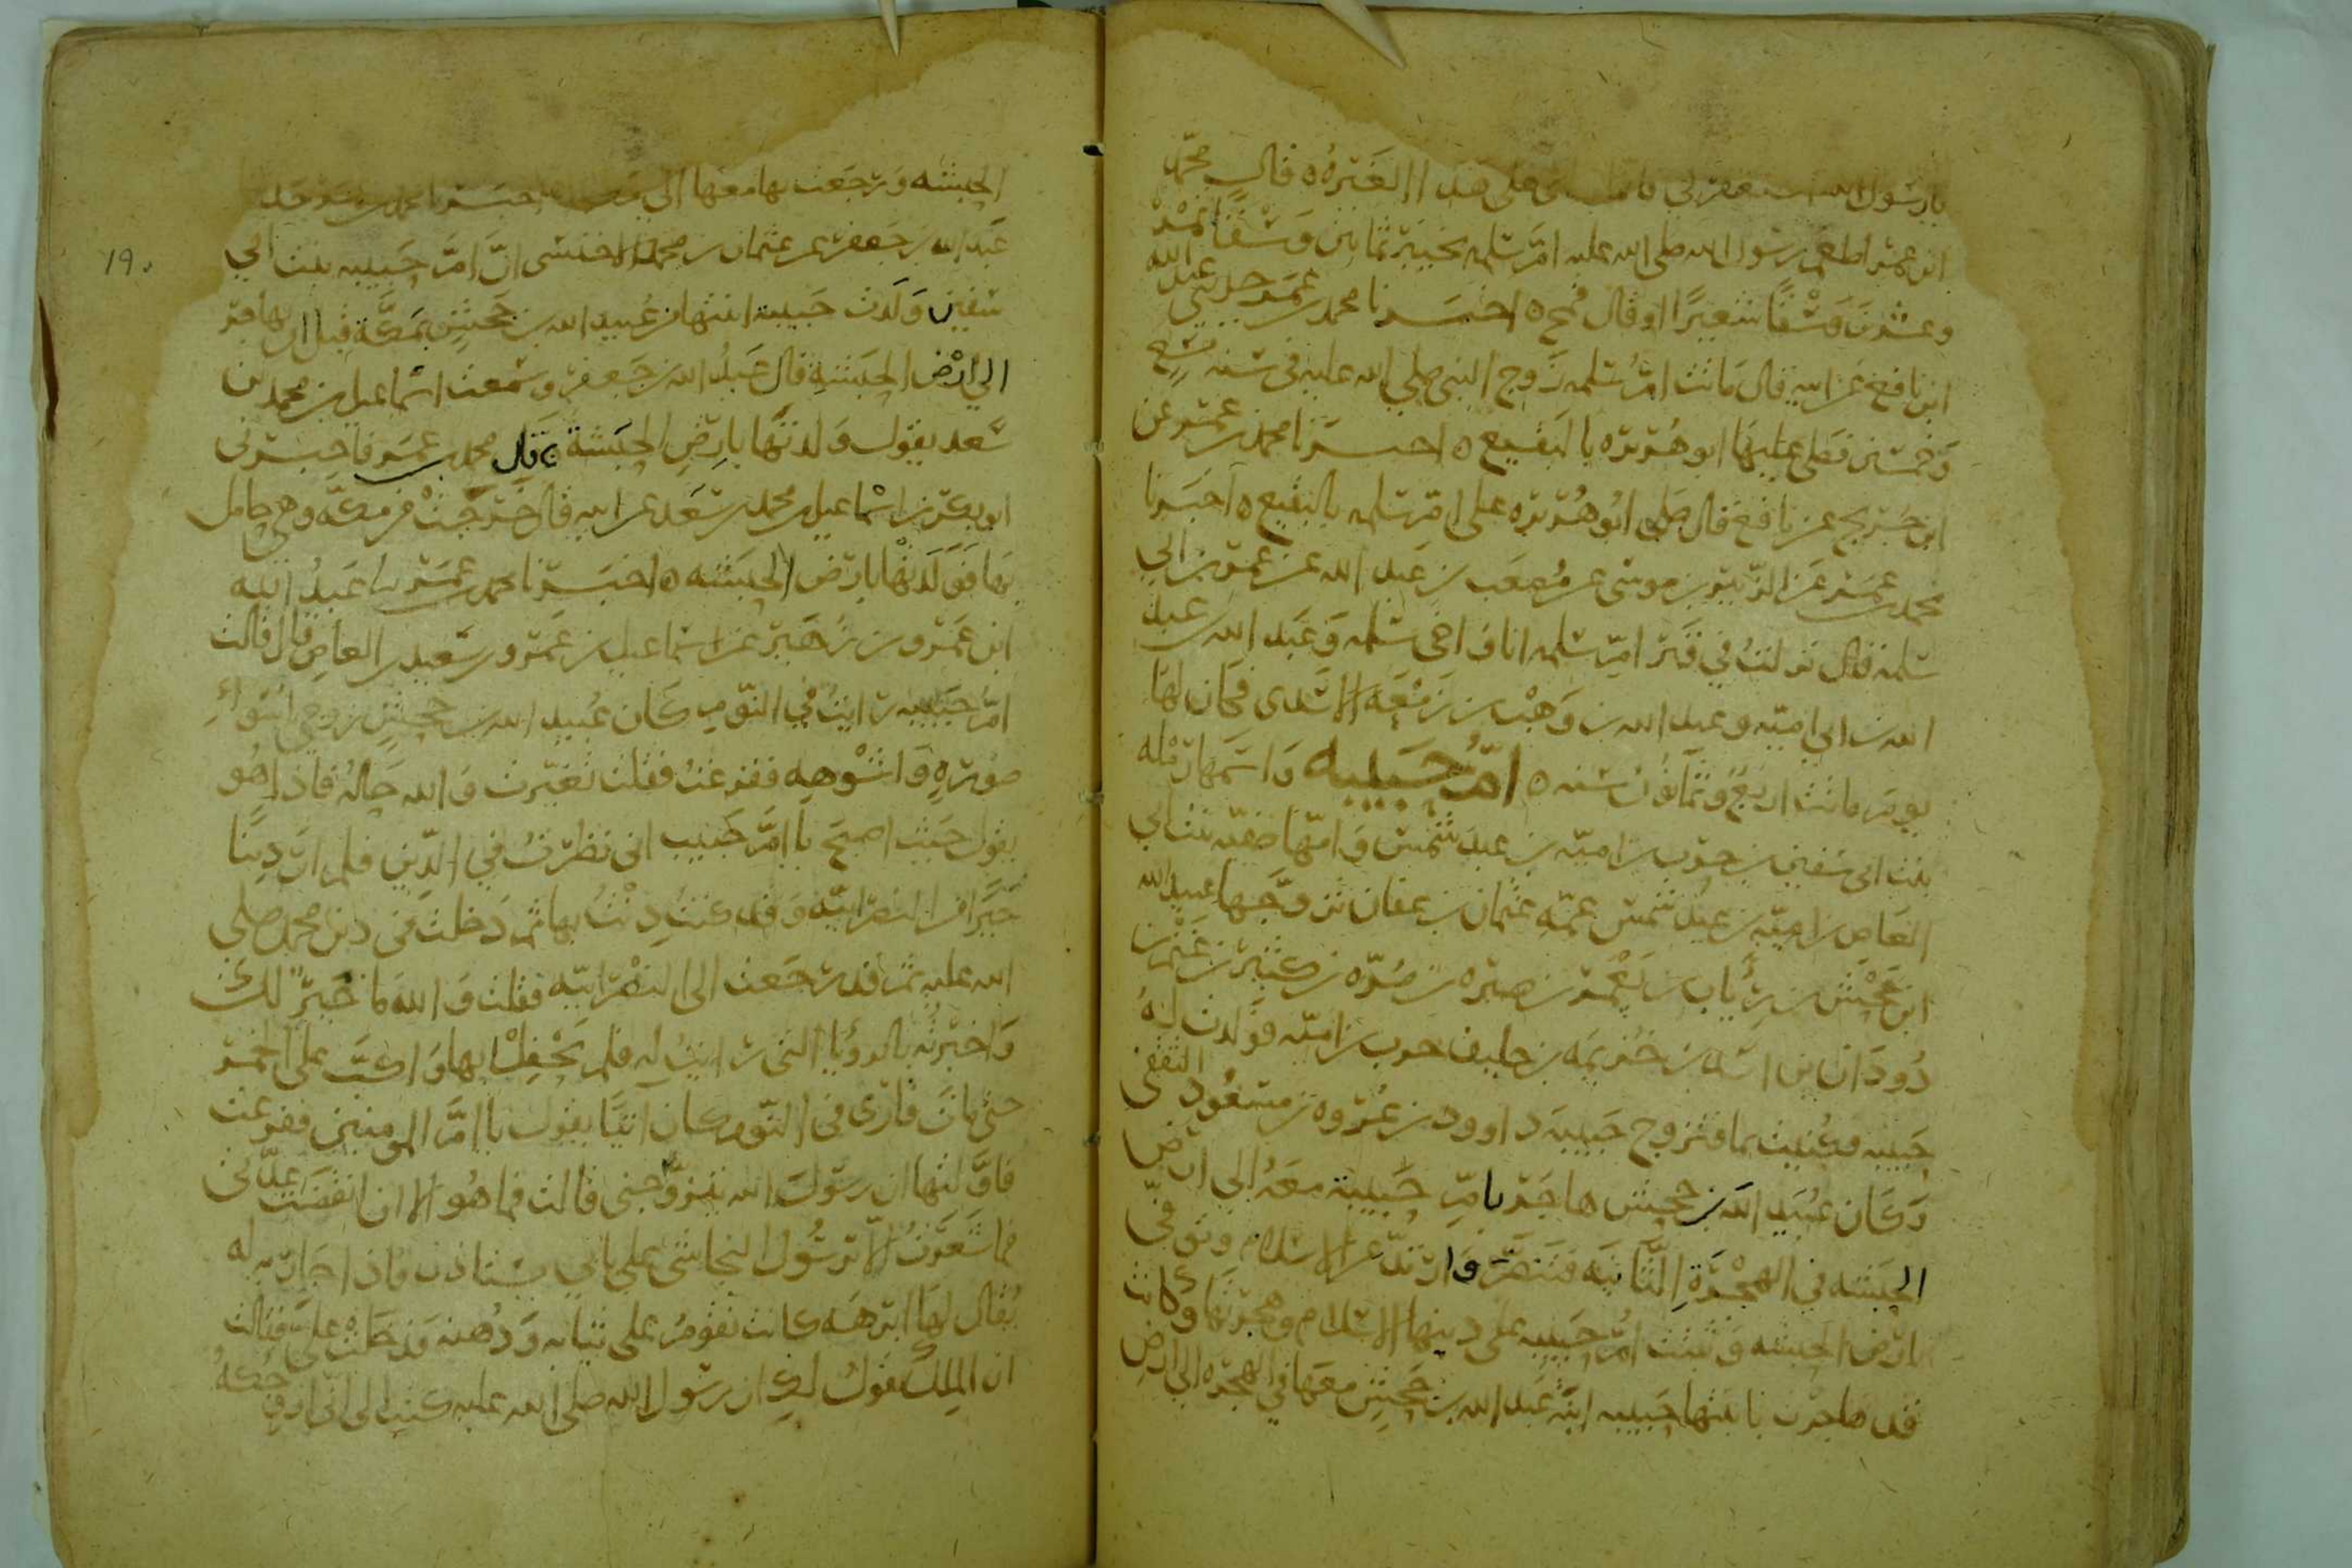 يا رسول الله استغفر لي ما حملني على هذا الا الغيره ه قال محمد
ابن عمر اطعم رسول الله صلى الله عليه ام سلمه بخيبر ثمانين وسقا تمر
وعشرين وسقا شعيرا او قال قمح ه اخبرنا محمد بن عمر حدثني عبد الله
ابن نافع عن ابيه قال ماتت ام سلمه زوج النبي صلى الله عليه في سنه تسع
وخمسين فصلى عليها ابو هريره بالبقيع ه اخبرنا محمد بن عمر عن
ابن جريج عن نافع قال صلى ابو هريره على ام سلمه بالبقيع ه اخبرنا
محمد بن عمر عن الزبير بن موسى عن مصعب بن عبد الله عن عمر بن ابي
سلمه قال نزلت في قبر ام سلمه انا واخي سلمه وعبد الله بن عبد
الله بن ابي اميه وعبد الله بن وهب بن زمعه الاسدي فكان لها
يوم ماتت اربع وثمانون سنه ه ام حبيبه واسمها رمله
بنت ابي سفين بن حرب بن اميه بن عبد شمس وامها صفيه بنت ابي
العاص بن اميه بن عبد شمس عمه عثمان بن عفان تزوجها عبيد الله
ابن جحش بن رياب بن يعمر بن صبره بن مره بن كبير بن غنم بن
دودان بن اسد بن خزيمه حليف حرب بن اميه فولدت له
حبيبه فكنيت بها فتزوج حبيبه داوود بن عروه بن مسعود الثقفي
وكان عبيد الله بن جحش هاجر بام حبيبة معه الى ارض
الحبشه في الهجرة الثانيه فتنصر وارتد عن الاسلام وتوفي
بارض الحبشه وثبتت ام حبيبه على دينها الاسلام وهجرتها وكانت
قد هاجرت بابنتها حبيبه ابنة عبد الله بن جحش معها في الهجره الى ارض
الحبشه ورجعت بها معها الى مكه اخبرنا محمد بن عمر حد
عبد الله بن جعفر عن عثمان بن محمد الاخنسي ان ام حبيبه بنت ابي
سفين ولدت حبيبة ابنتها من عبيد الله بن جحش بمكة قبل ان يهاجر
الى ارض الحبشة قال عبد الله بن جعفر وسمعت اسماعيل بن محمد بن
سعد يقول ولدتها بارض الحبشة ه قال محمد بن عمر فاخبرني
ابو بكر بن اسماعيل بن محمد بن سعد عن ابيه قال خرجت من مكه وهي حامل
بها فولدتها بارض الحبشه ه اخبرنا محمد بن عمر نا عبد الله
ابن عمرو بن زهير عن اسماعيل بن عمرو بن سعيد بن العاص قال قالت
ام حبيبه رايت في النوم كان عبيد الله بن جحش زوجي باسوا
صوره واشوهه ففزعت فقلت تغيرت والله حاله فاذا هو
يقول حيث اصبح يا ام حبيب اني نظرت في الدين فلم ار دينا
خيرا من النصرانيه وقد كنت دنت بها ثم دخلت في دين محمد صلى
الله عليه ثم قد رجعت الى النصرانيه فقلت والله ما خير لك
واخبرته بالرويا التي رايت له فلم يحفل بها واكب على الخمر
حتى مات فارى في النوم كان اتيا يقول يا ام المومنين ففزعت
فاولتها ان رسول الله يتزوجني قالت فما هو الا ان انقضت عدتي
فما شعرت الا برسول النجاشي على بابي يستاذن فاذا جاريه له
يقال لها ابرهه كانت تقوم على ثيابه ودهنه فدخلت علي فقالت
ان الملك يقول لك ان رسول الله صلى الله عليه كتب الى ان ازوجكه
١٩٠